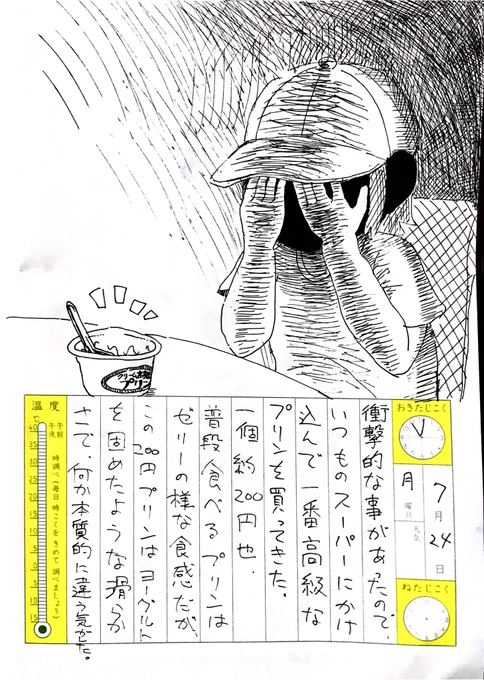 クリーム専科
プリン
おきたじこく
7月24日
月
曜日
天気
ねたじこく
衝撃的な事があったので、
いつものスーパーにかけ
込んで一番高級な
プリンを買ってきた。
一個約200円也。
普段食べるプリンは
ゼリーの様な食感だが、
この200円プリンはヨーグルト
を固めたような滑らか
さで、何か本質的に違う気がした。
温度
℃
午前
午後
時調べ(毎日時こくをきめて調べましょう)
40
35
30
25
20
15
10
5
0
5
10
15